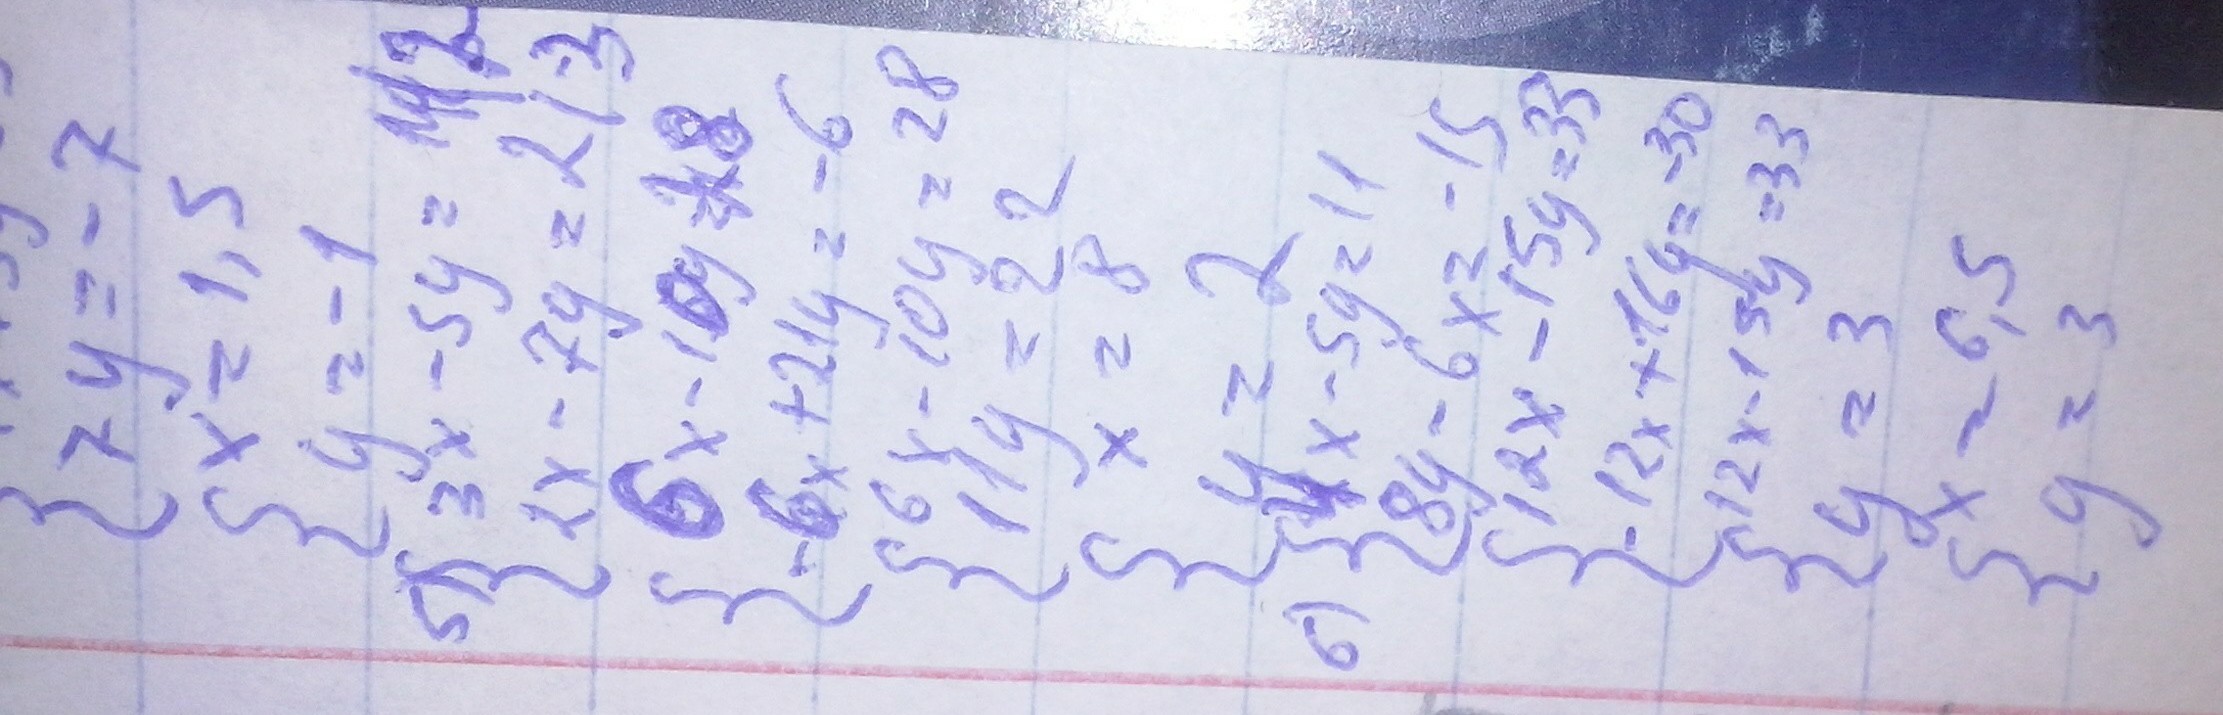 7y = -7
x = 1,5
y = -1
5) 3x - 5y = 14 | 2
2x - 7y = 2 | -3
6x - 10y = 28
-6x + 21y = -6
6x - 10y = 28
11y = 22
x = 8
y = 2
6) 4x - 5y = 11
8y - 6x = -15
12x - 15y = 33
-12x + 16y = -30
12x - 15y = 33
y = 3
x = 6,5
y = 3